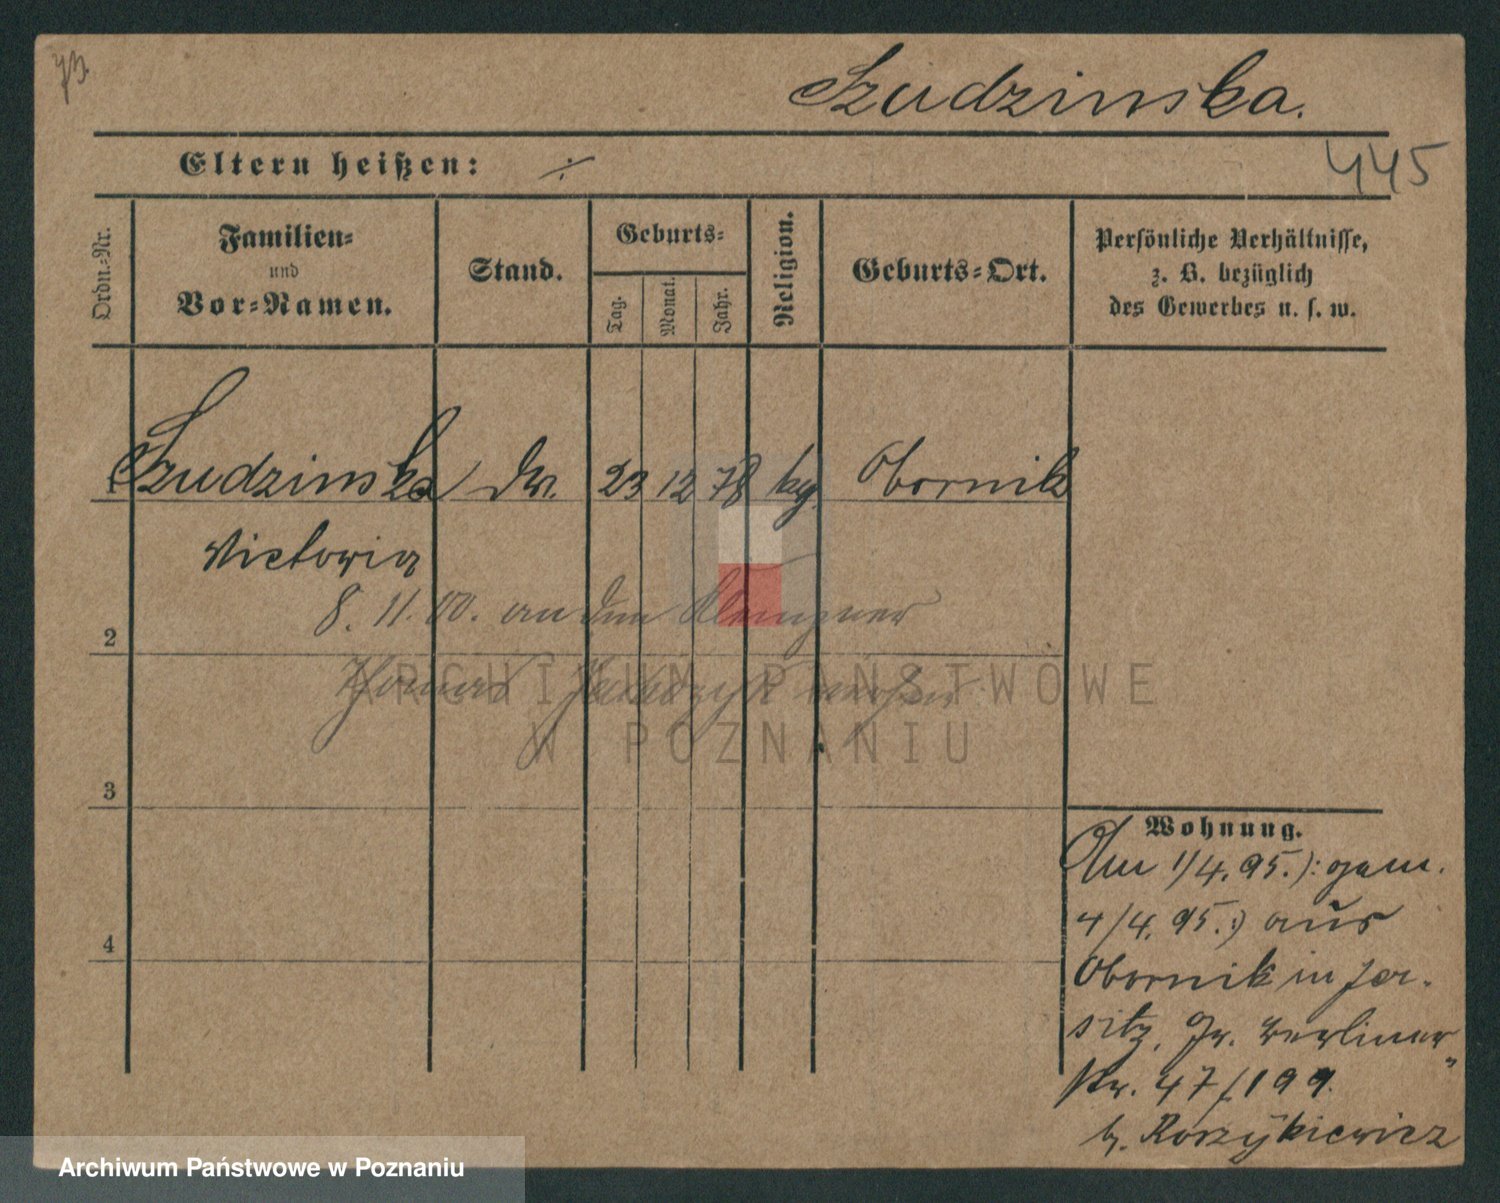 Szudzinska.
445
Eltern heißen: ÷
Ordn.-Nr.
Familien-
und
Vor-Namen.
Stand.
Geburts-
Tag.
Monat.
Jahr.
Religion.
Geburts-Ort.
Persönliche Verhältnisse,
z. B. bezüglich
des Gewerbes u. s. w.
1 Szudzinska 23 12 78 Obornik
Victoria
8. 11. 00. an den
2
ARCHIWUM PAŃSTWOWE
W POZNANIU
3
4
Wohnung.
Am 1/4. 95. ): gem.
4/4. 95. :) aus
Obornik in Jer-
sitz, Gr. Berliner-
str. 47/199.
b. Roszykiewicz
Archiwum Państwowe w Poznaniu